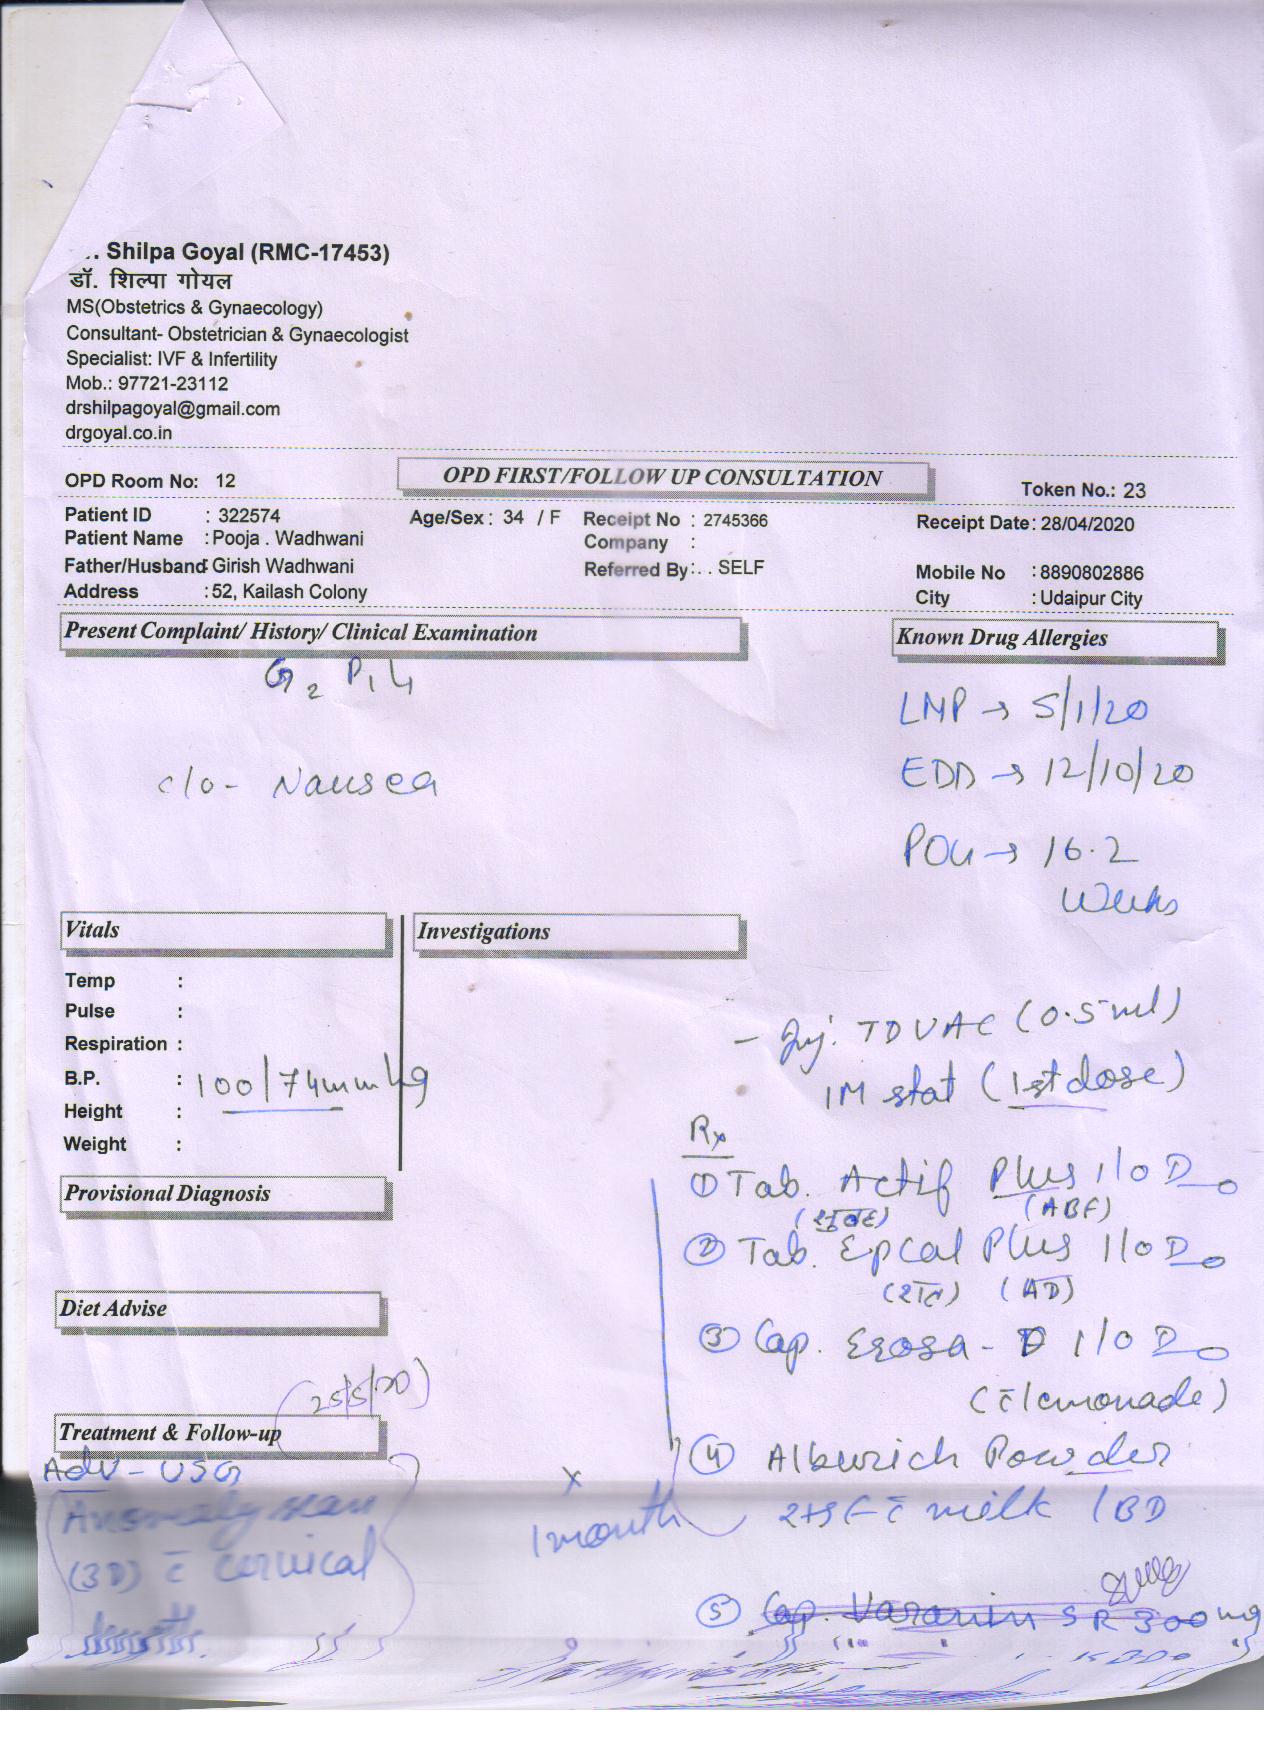 . Shilpa Goyal (RMC-17453)
डॉ. शिल्पा गोयल
MS(Obstetrics & Gynaecology)
Consultant- Obstetrician & Gynaecologist
Specialist: IVF & Infertility
Mob.: 97721-23112
drshilpagoyal@gmail.com
drgoyal.co.in
OPD Room No: 12
OPD FIRST/FOLLOW UP CONSULTATION
Token No.: 23
Patient ID : 322574
Age/Sex : 34 / F
Receipt No : 2745366
Receipt Date: 28/04/2020
Patient Name : Pooja . Wadhwani
Company :
Father/Husband: Girish Wadhwani
Referred By: . . SELF
Mobile No : 8890802886
Address : 52, Kailash Colony
City : Udaipur City
Present Complaint/ History/ Clinical Examination
Known Drug Allergies
G2 P1 L1
LMP → 5/1/20
c/o - Nausea
EDD → 12/10/20
POG → 16.2
Weeks
Vitals
Investigations
Temp :
Pulse :
Respiration :
B.P. : 100/74mmHg
Height :
Weight :
- Inj. TDVAC (0.5ml)
IM stat (1st dose)
Rx
① Tab. Actif Plus 1/OD
(सुबह) (ABF)
② Tab. Epcal Plus 1/OD
(रात) (AD)
③ Cap. Erosa - D 1/OD
(c̄ lemonade)
④ Alburich Powder
2tsf c̄ milk /BD
x 1month
⑤ Cap. SR 300mg
Provisional Diagnosis
Diet Advise
(25/5/20)
Treatment & Follow-up
Adv - USG
Anomaly scan
(3D) c̄ cervical
length.